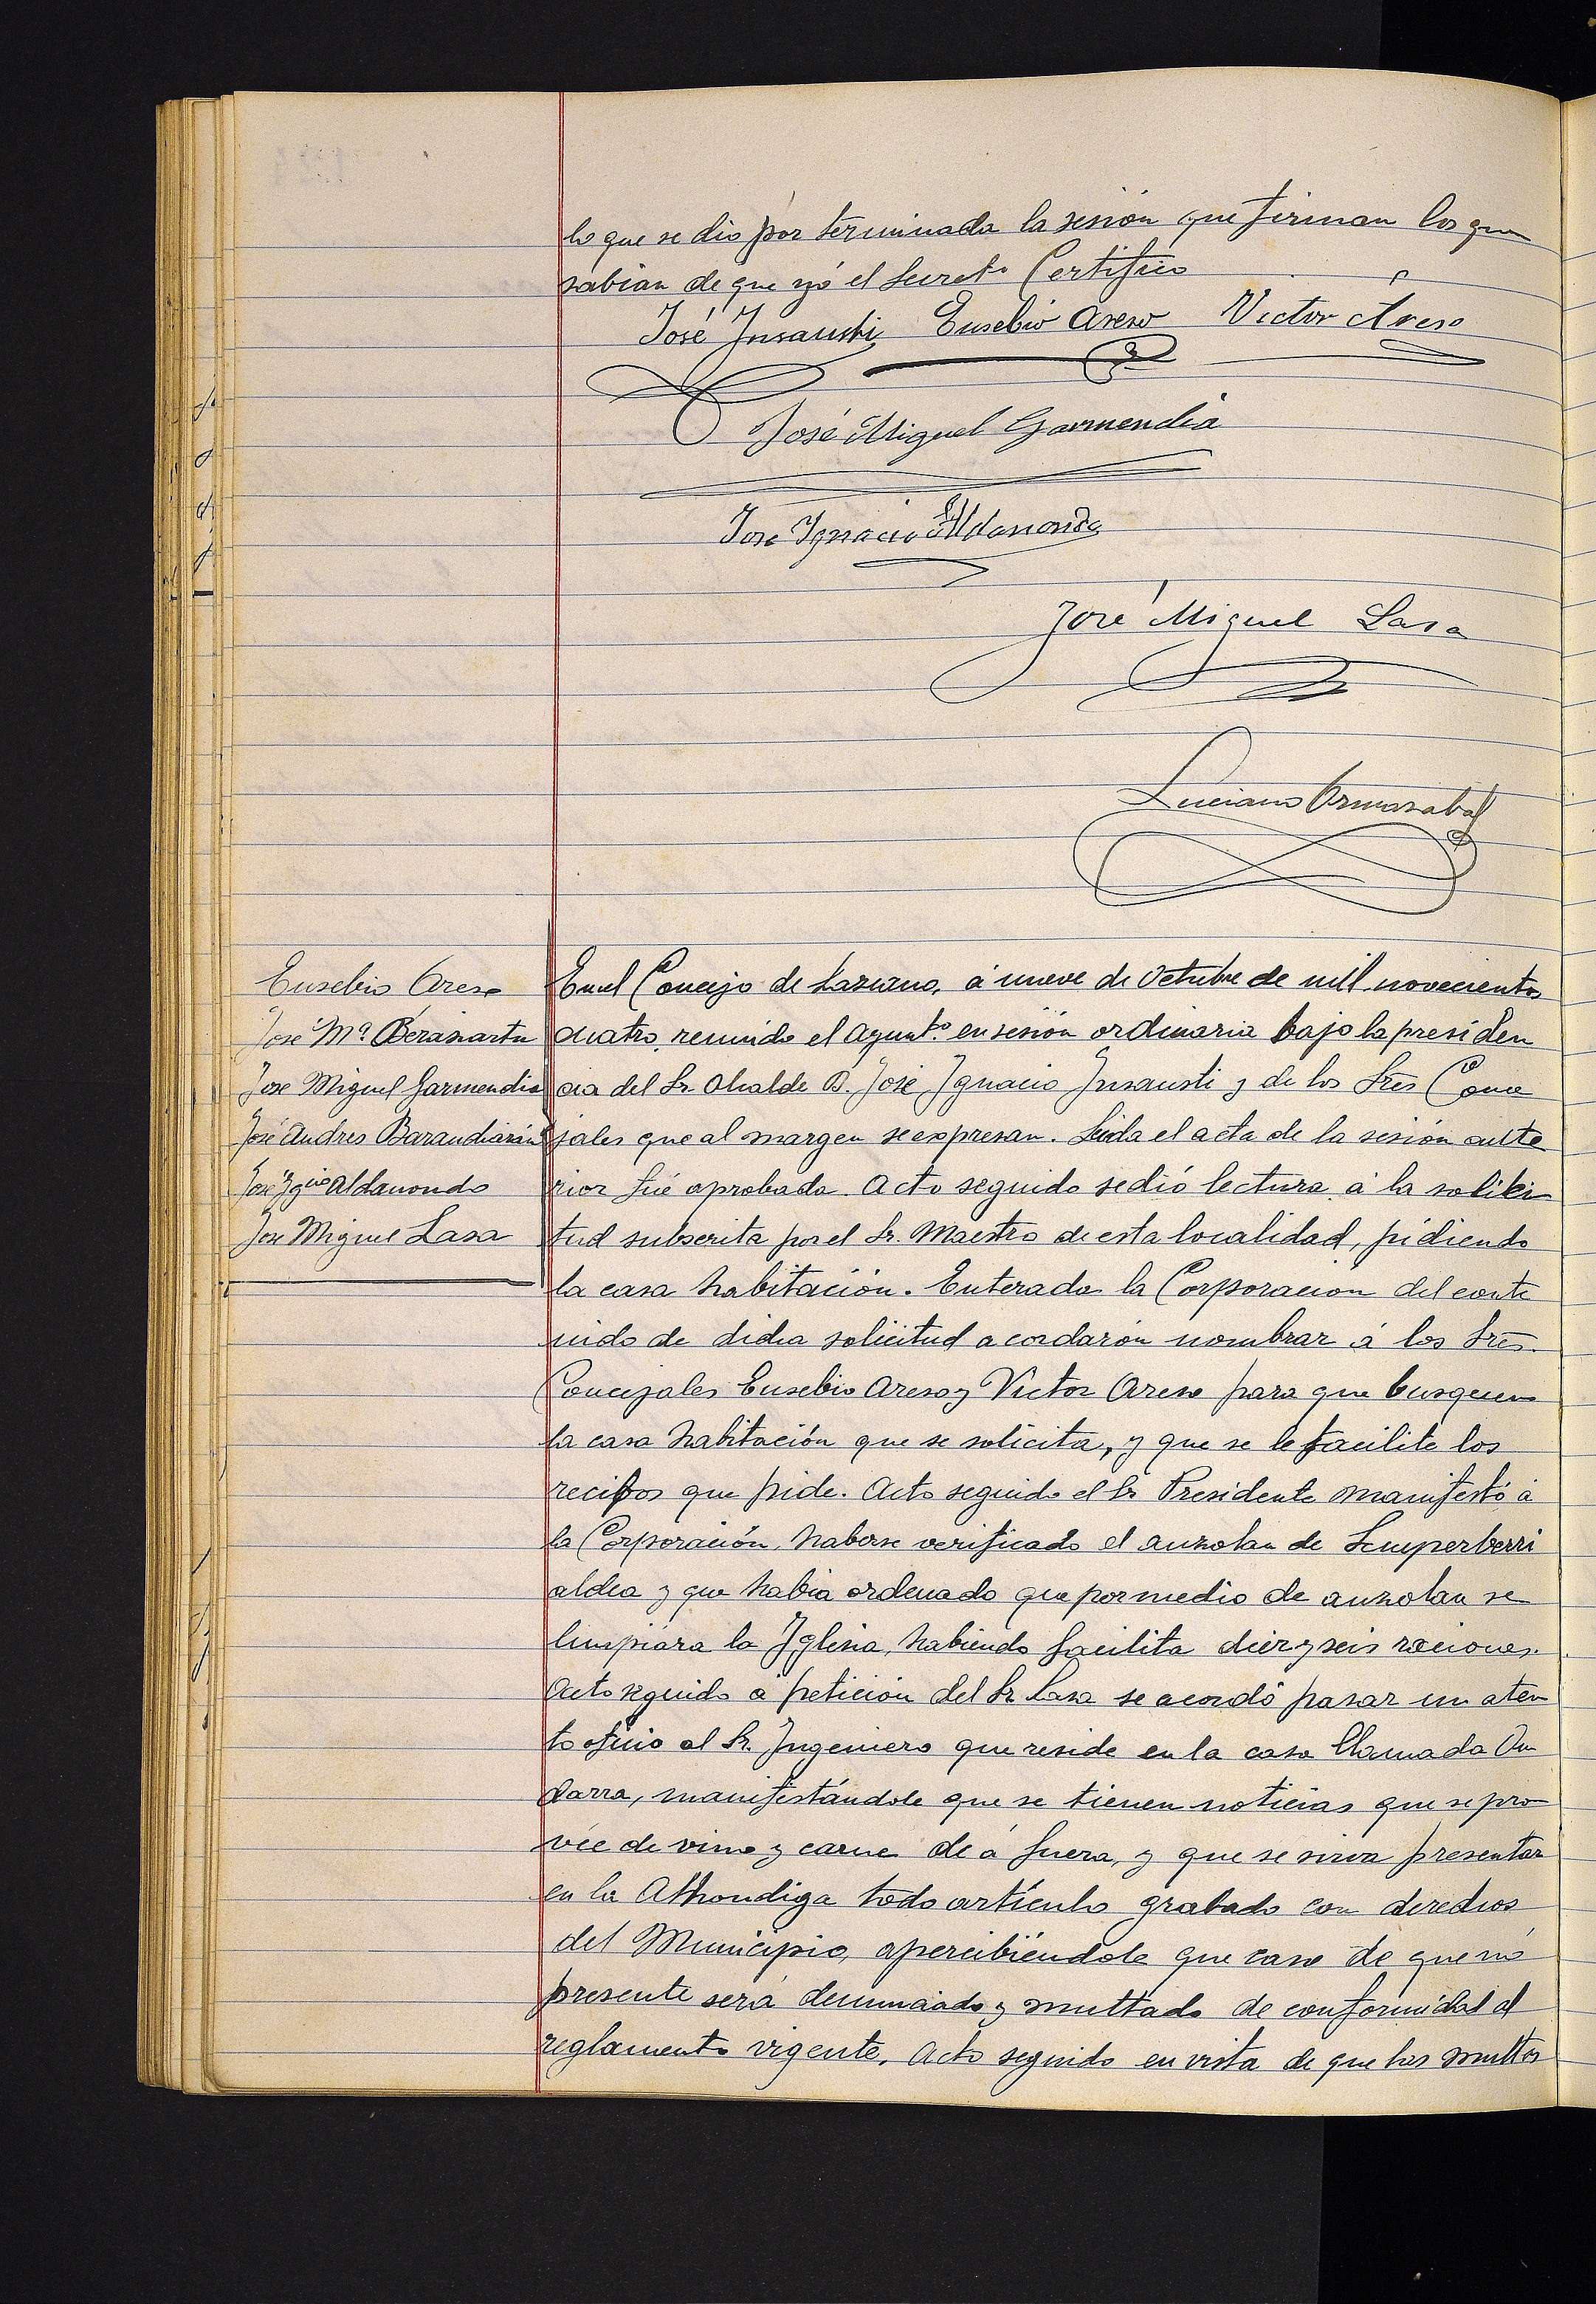 lo que se dio por terminada la sesión que firman los que
sabian de que yó el Secret.º Certifico
José Insausti Eusebio Areso Victor Areso
José Miguel Garmendia
José Ignacio Aldanondo
José Miguel Lasa
Luciano Ormazabal
Eusebio Areso
José Mª Berasartu
José Miguel Garmendia
José Andres Barandiarán
José Ygcio Aldanondo
José Miguel Lasa
En el Concejo de Lazcano, á nueve de Octubre de mil novecientos
cuatro, reunido el Ayunt.º en sesión ordinaria bajo la presiden
cia del Sr. Alcalde D. José Ignacio Insausti y de los Sres Conce
jales que al margen se expresan. Leida el acta de la sesión ante
rior fué aprobada. Acto seguido se dió lectura á la solici
tud subscrita por el Sr. Maestro de esta localidad, pidiendo
la casa habitación. Enterada la Corporacion del conte
nido de dicha solicitud acordarón nombrar á los Sres.
Concejales Eusebio Areso y Victor Areso para que busquen
la casa habitación que se solicita, y que se le facilite los
recibos que pide. Acto seguido el Sr Presidente manifestó á
la Corporación, haberse verificado el auzolan de Semperberri
aldea y que habia ordenado que por medio de auzolan se
limpiára la Yglesia, habiendo facilita diez y seis raciones.
Acto seguido á petición del Sr Lasa se acordó pasar un aten
to oficio al Sr. Ingeniero que reside en la casa llamada On
darra, manifestándole que se tienen noticias que se pro
vée de vino y carne de á fuera, y que se sirva presentar
en la Alhondiga todo artículo grabado con derechos
del Municipio, apercibiéndole que caso de que nó
presente será denunciado y multado de conformidad al
reglamento vigente. Acto seguido en vista de que las multas